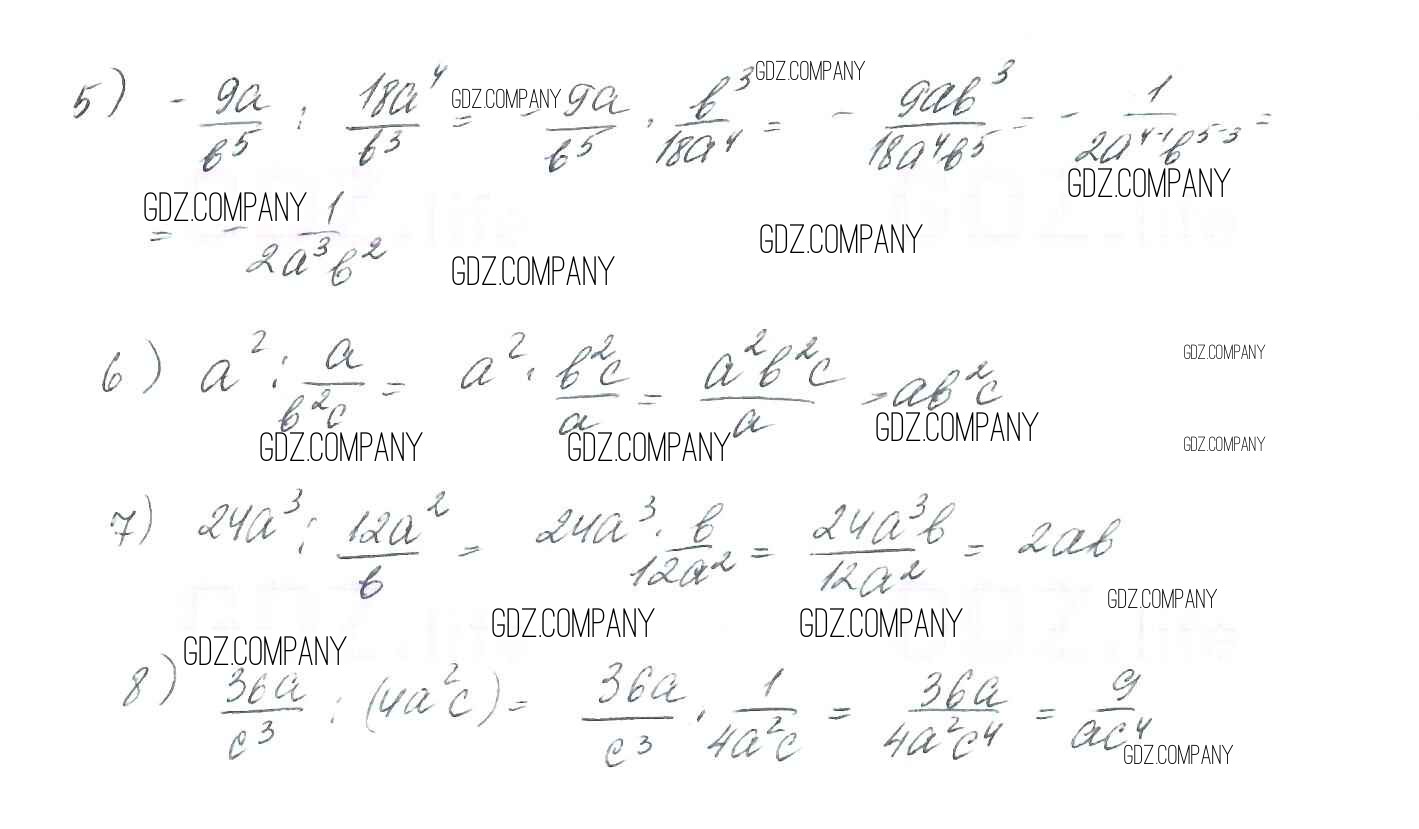 5) - 9a/b⁵ : 18a⁴/b³ = - 9a/b⁵ · b³/18a⁴ = - 9ab³/18a⁴b⁵ = - 1/2a⁴⁻¹b⁵⁻³ =
GDZ.COMPANY GDZ.COMPANY
GDZ.COMPANY GDZ.COMPANY
= - 1/2a³b²
GDZ.COMPANY GDZ.COMPANY
GDZ.COMPANY
6) a² : a/b²c = a² · b²c/a = a²b²c/a = ab²c
GDZ.COMPANY GDZ.COMPANY GDZ.COMPANY GDZ.COMPANY
7) 24a³ : 12a²/b = 24a³ · b/12a² = 24a³b/12a² = 2ab
GDZ.COMPANY GDZ.COMPANY GDZ.COMPANY GDZ.COMPANY
8) 36a/c³ : (4a²c) = 36a/c³ · 1/4a²c = 36a/4a²c⁴ = 9/ac⁴
GDZ.COMPANY